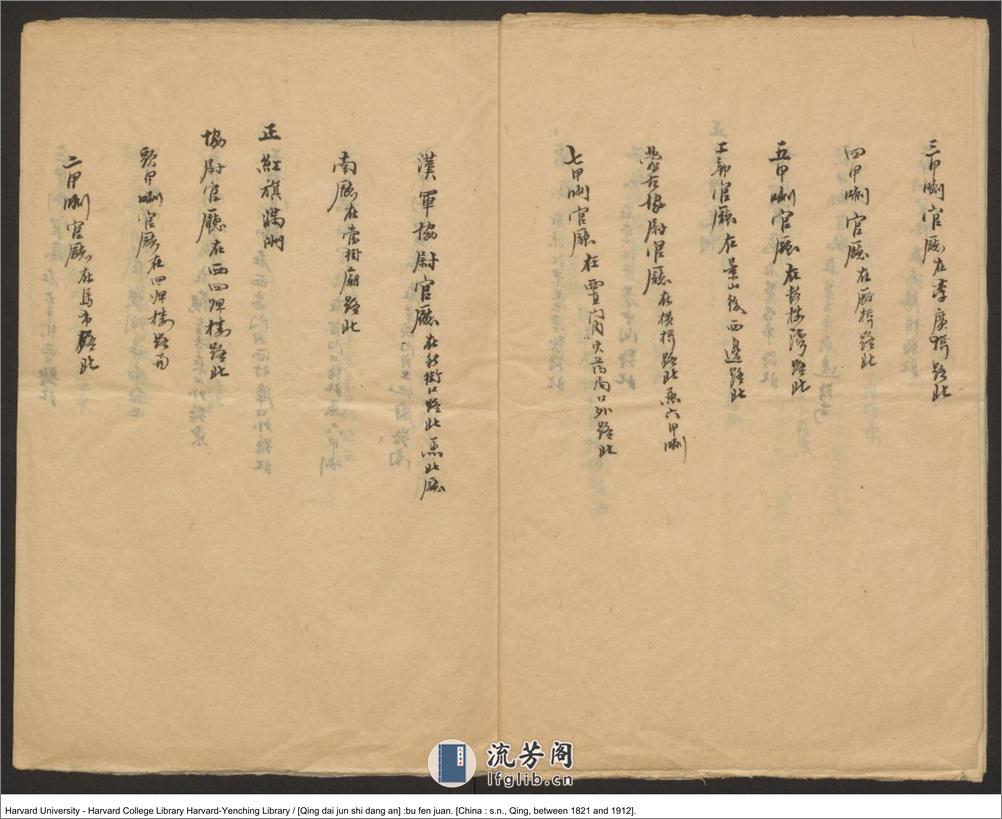 三甲喇官廳在李廣橋路北
四甲喇官廳在廠橋路北
五甲喇官廳在鼓樓灣路北
工部官廳在景山後西邊路北
蒙古協尉官廳在橫橋路北兼六甲喇
七甲喇官廳在西直門內火药局口外路北
漢軍協尉官廳在新街口路北兼北廳
南廳在當街廟路北
正紅旗滿洲
協尉官廳在西四牌樓路北
頭甲喇官廳在四牌樓路南
二甲喇官廳在馬市路北
流芳阁
lfglib.cn
Harvard University - Harvard College Library Harvard-Yenching Library / [Qing dai jun shi dang an] :bu fen juan. [China : s.n., Qing, between 1821 and 1912].